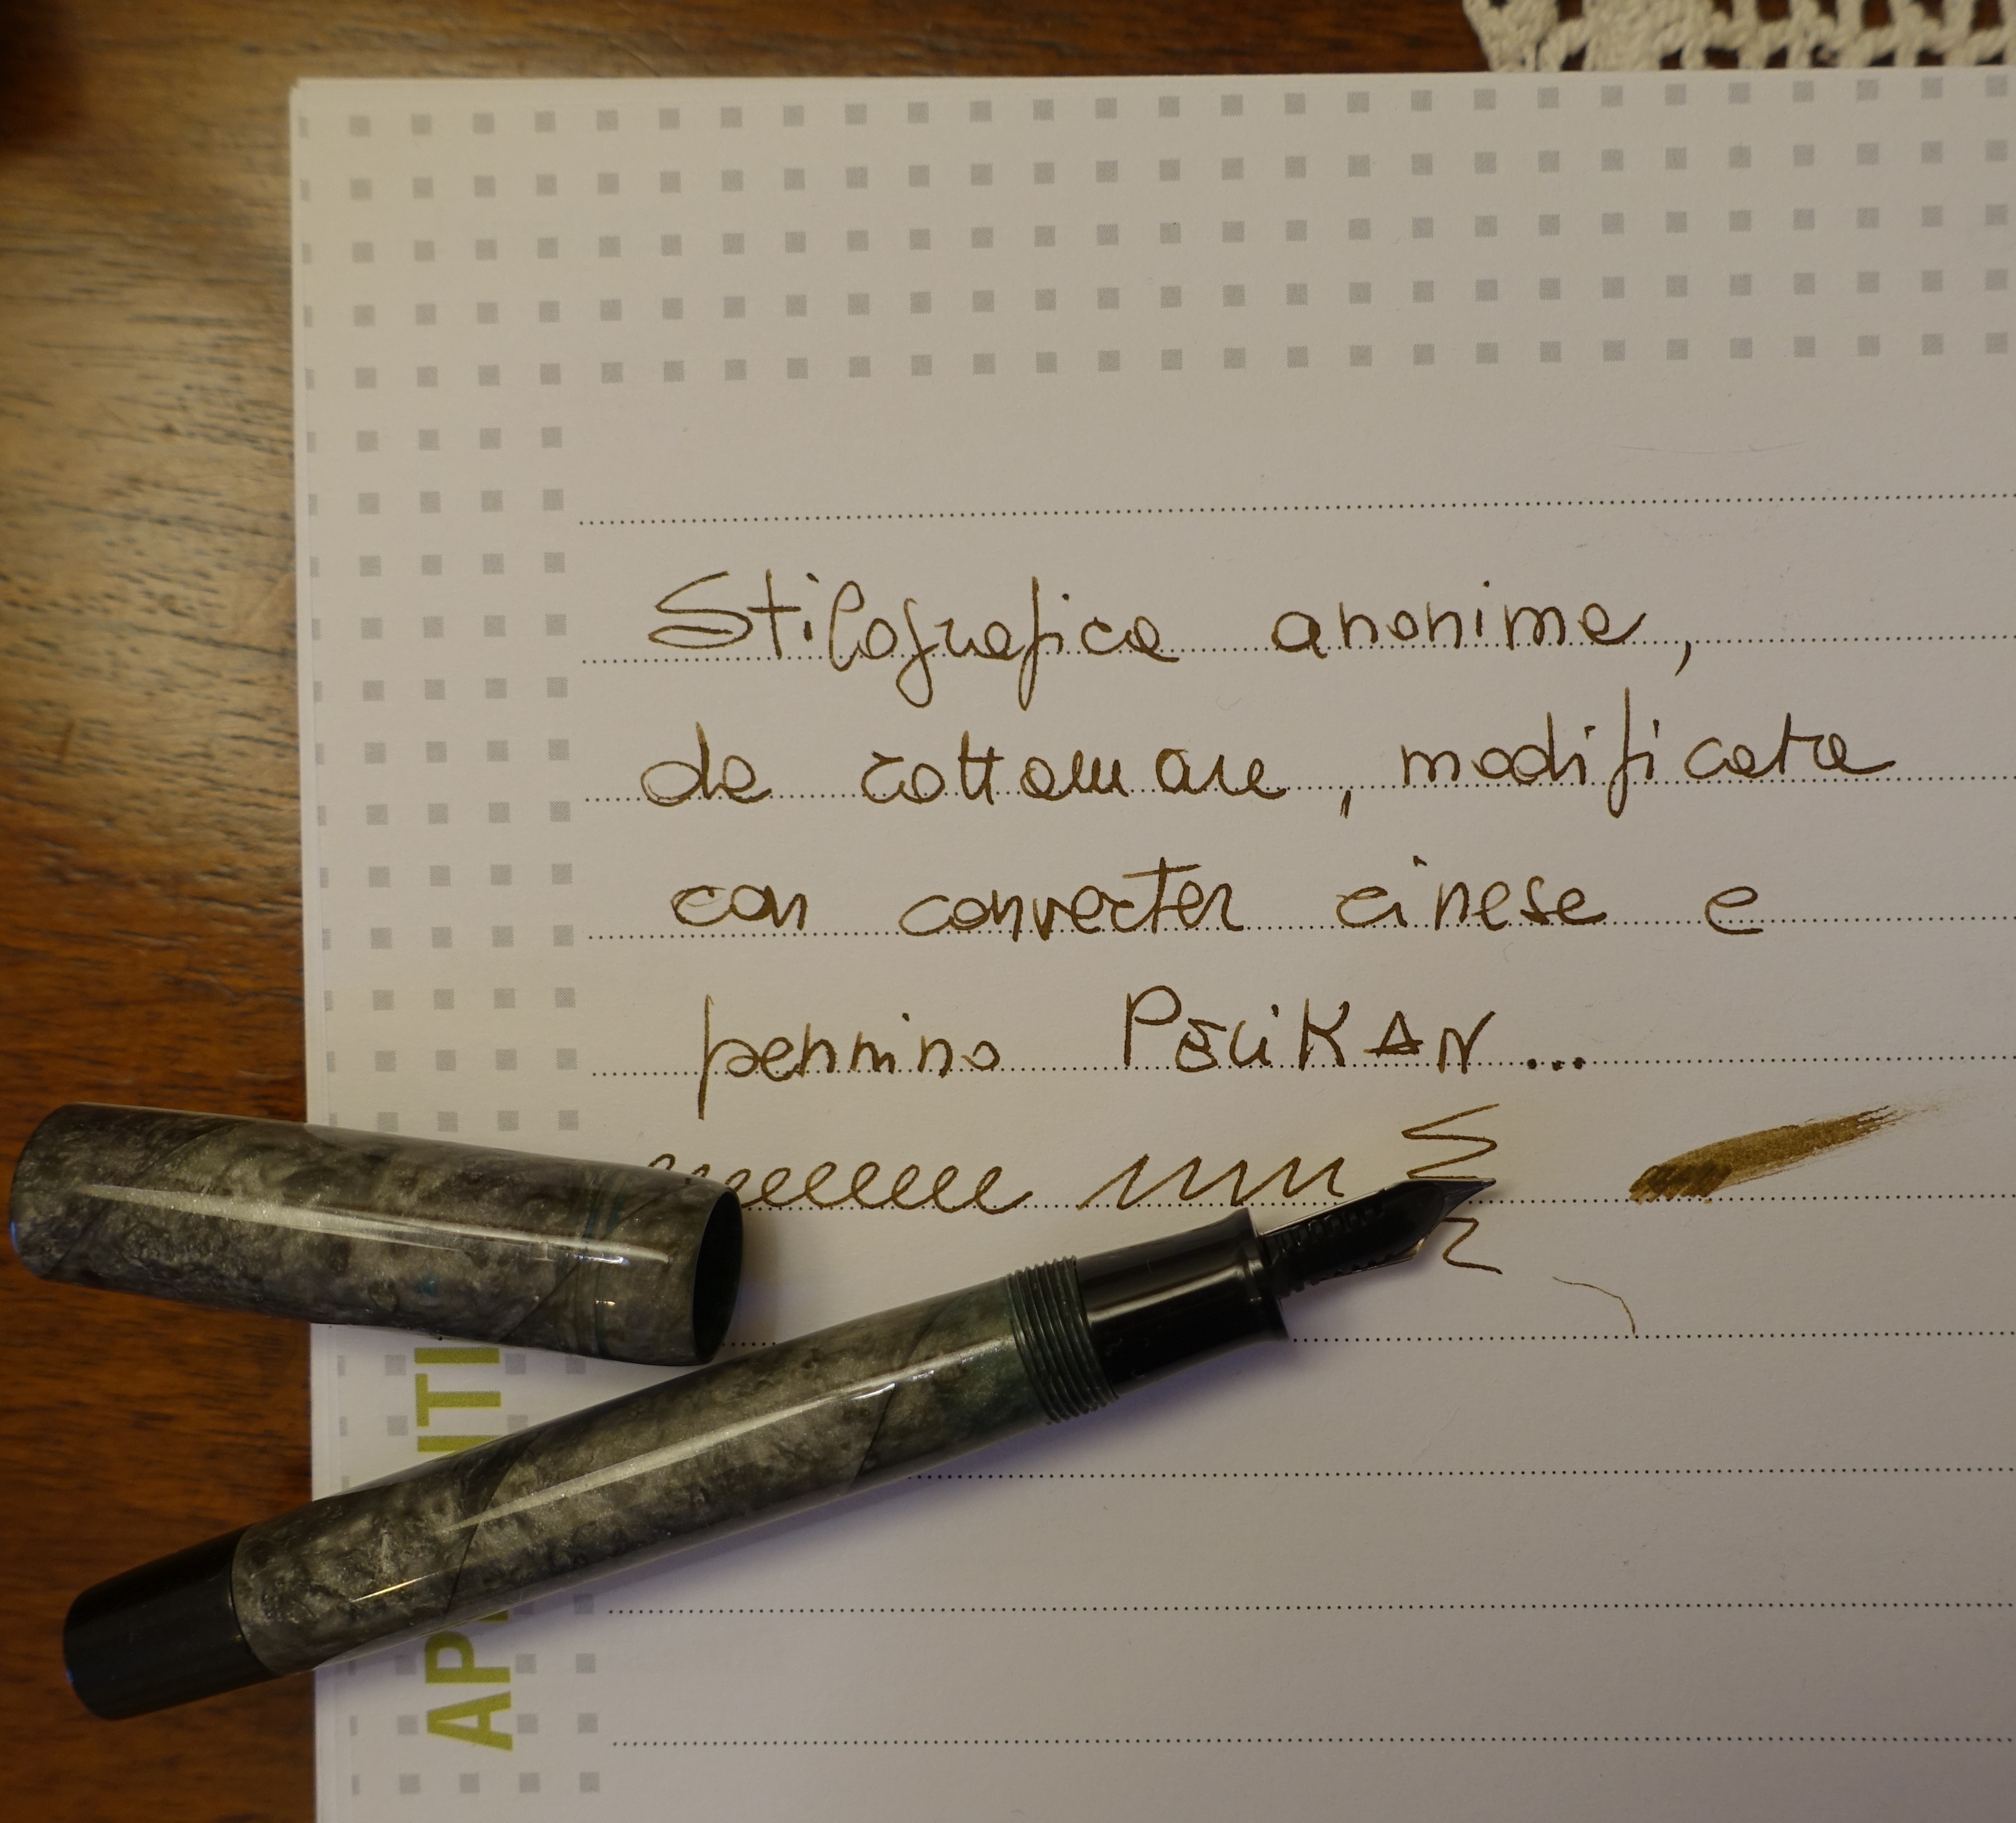 Stilografica anonima,
da rottamare, modificata
con converter cinese e
pennino PELiKAN...